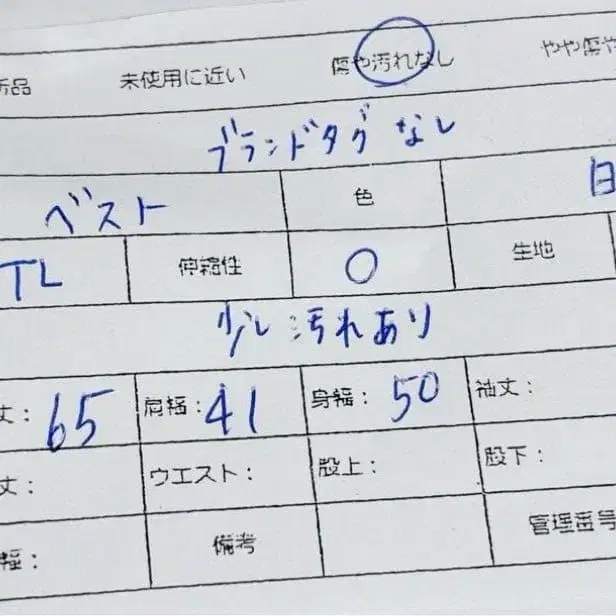 新品 未使用に近い 傷や汚れなし やや傷や
ブランドタグ なし
ベスト 色
TL 伸縮性 〇 生地
少し汚れあり
丈: 65 肩幅: 41 身幅: 50 袖丈:
丈: ウエスト: 股上: 股下:
幅: 備考 管理番号